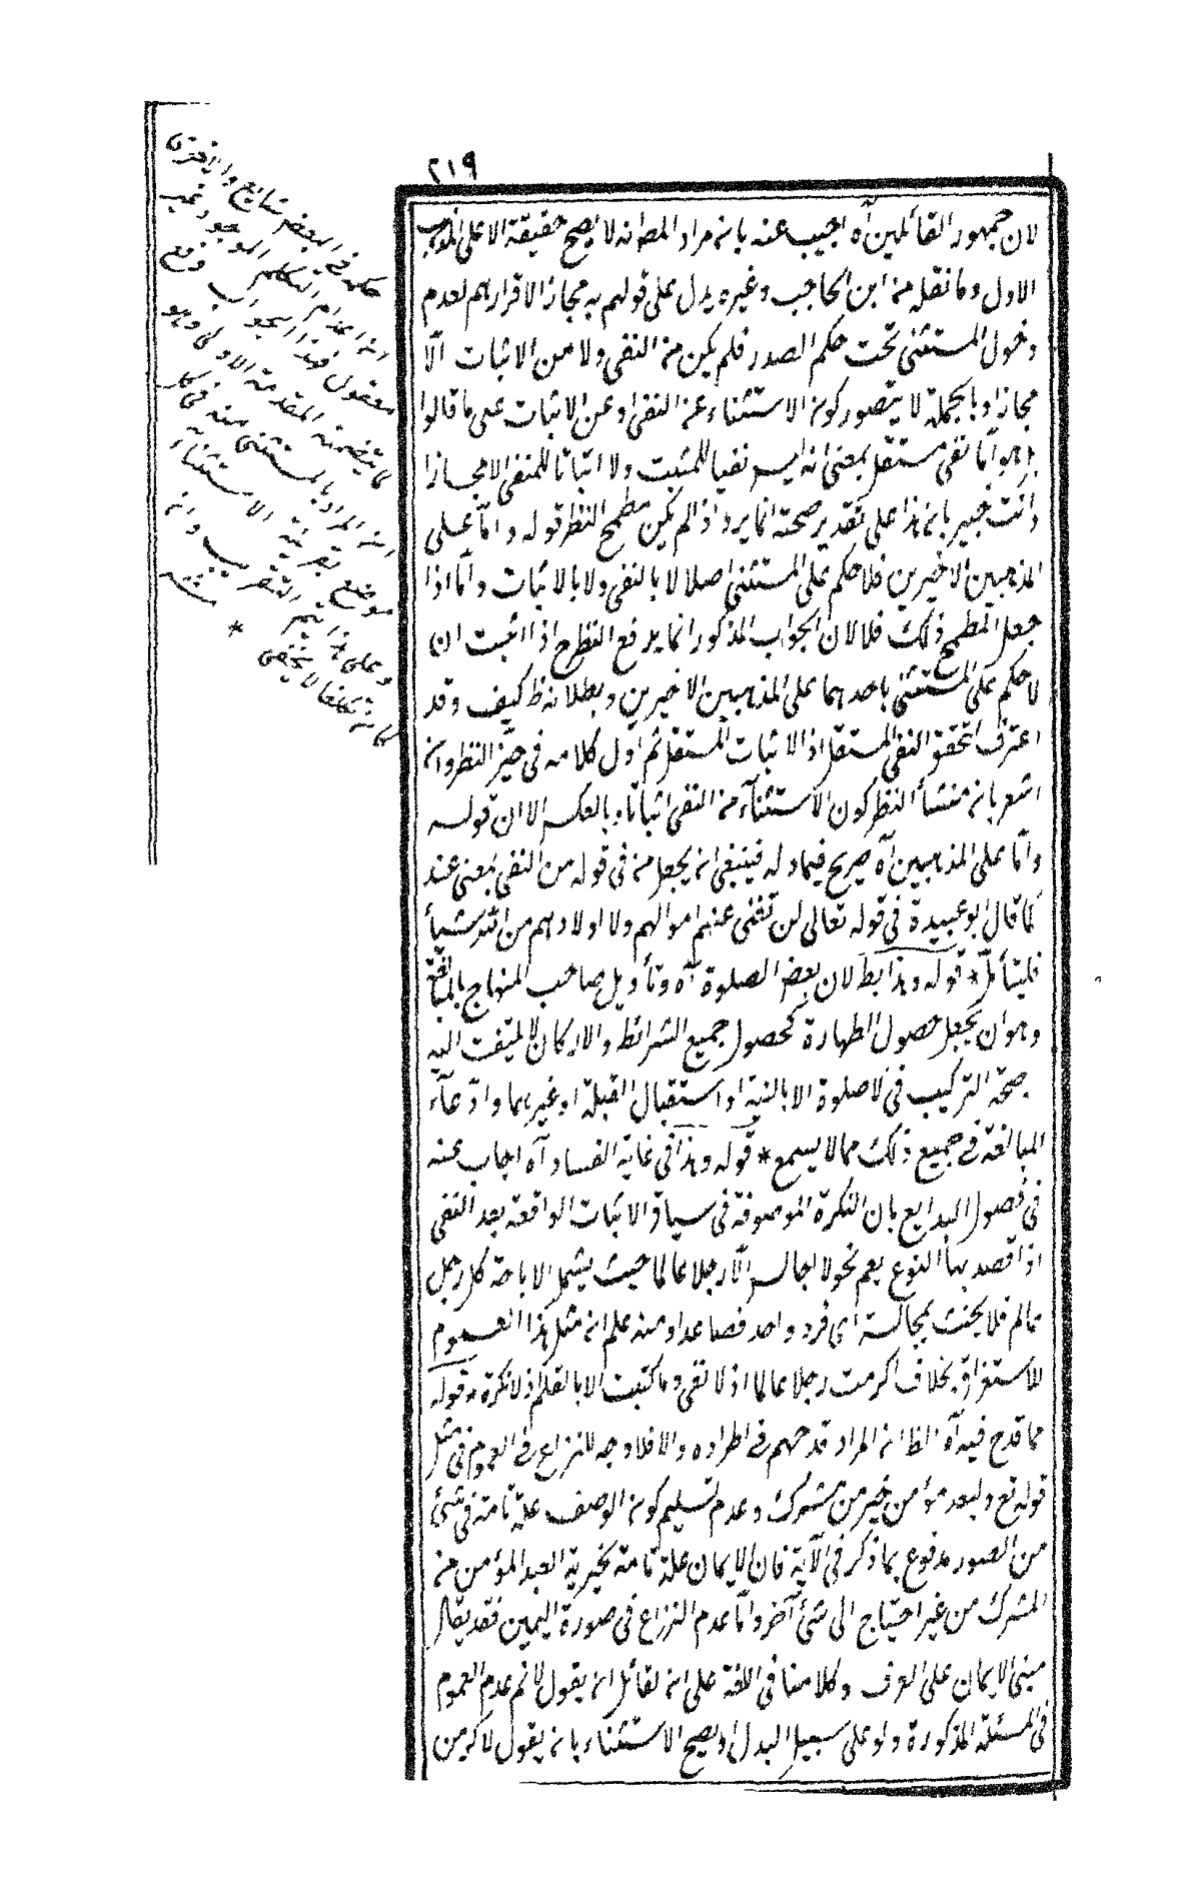 ٢١٩
لان جمهور القائلين آه اجيب عنه بانه مراد المص انه لا يصح حقيقة الا على المذهب
الاول وما نقله من ابن الحاجب وغيره يدل على قولهم به مجازا لاقرارهم لعدم
دخول المستثنى تحت حكم الصدر فلم يكن من النفى ولا من الاثبات الّا
مجازا وبالجملة لا يتصور كون الاستثناء عن النفى او عن الاثبات على ما قالوا
بل هو اما نفى مستقل بمعنى انه ليس نفيا للمثبت ولا اثباتا للمنفى الا مجازا
وانت خبير بان هذا على تقدير صحته انما يرد اذا لم يكن مطمح النظر قوله وامّا على
المذهبين الاخيرين فلا حكم على المستثنى اصلا لا بالنفى ولا بالاثبات وامّا اذا
جعل المطمح ذلك فلا لان الجواب المذكور انما يدفع النظر ح اذا اثبت ان
لا حكم على المستثنى باحدهما على المذهبين الاخيرين وبطلانه ظ كيف وقد
اعترف بتحقق النفى المستقل اذ الاثبات المستقل ثم اول كلامه فى حيّز النظر وانه
اشعر بانه منشأ النظر كون الاستثنآء من النفى اثباتا وبالعكس الا ان قوله
وامّا على المذهبين آه صريح فيما وله فينبغى ان يجعل من فى قوله من النفى بمعنى عند
كما قال ابو عبيدة فى قوله تعالى لن تغنى عنهم اموالهم ولا اولادهم من الله شيأ
فليتأمل * قوله وهذا بط لان بعض الصلوة آه وتأويل صاحب المنهاج بالمبالغة
وهو ان يجعل حصول الطهارة كحصول جميع الشرائط والاركان لا يلتفت اليه
صحة التركيب فى لا صلوة الا بالنية او استقبال القبلة او غيرهما وادّعآء
المبالغة فى جميع ذلك مما لا يسمع * قوله وهذا فى غاية الفساد آه اجاب عنه
فى فصول البدايع بان النكرة الموصوفة فى سياق الاثبات الواقعة بعد النفى
اذا قصد بها النوع يعم نحو لا اجالس الّا رجلا عالما حيث يشمل الاباحة كل رجل
عالم فلا يحنث بمجالسة اى فرد واحد فصاعدا ومنه علم ان مثل هذا العموم
للاستغراق بخلاف اكرمت رجلا عالما اذ لا نفى وما كتبت الا بالقلم اذ لا نكرة * قوله
مما قدح فيه آه الظ ان المراد قدحهم فى اطراده والا فلا وجه للنزاع فى العموم فى مثل
قوله تع ولعبد مؤمن خير من مشرك وعدم تسليم كون الوصف علة تامة فى شئ
من الصور مدفوع بما ذكر فى الآية فان الايمان علة تامة لخيرية العبد المؤمن من
المشرك من غير احتياج الى شئ آخر وامّا عدم النزاع فى صورة اليمين فقد يقال
مبنى الايمان على العرف وكلامنا فى اللغة على ان لقائل ان يقول لا نم عدم العموم
فى المسئلة المذكورة ولو على سبيل البدل او يصح الاستثناء بان يقول لاكرمن
حكمه فى البعض شايع والا
انه اعدام التكلم الموجود غير
معقول فهذا الجواب وقع
ما يتضمنه المقدمة الاولى وهو
ان المراد بالمستثنى منه فى كل
موضع بقرينة الاستثناء
وعلى هذا يتم التقريب وانه
كان تكلفا لا يخفى * منه